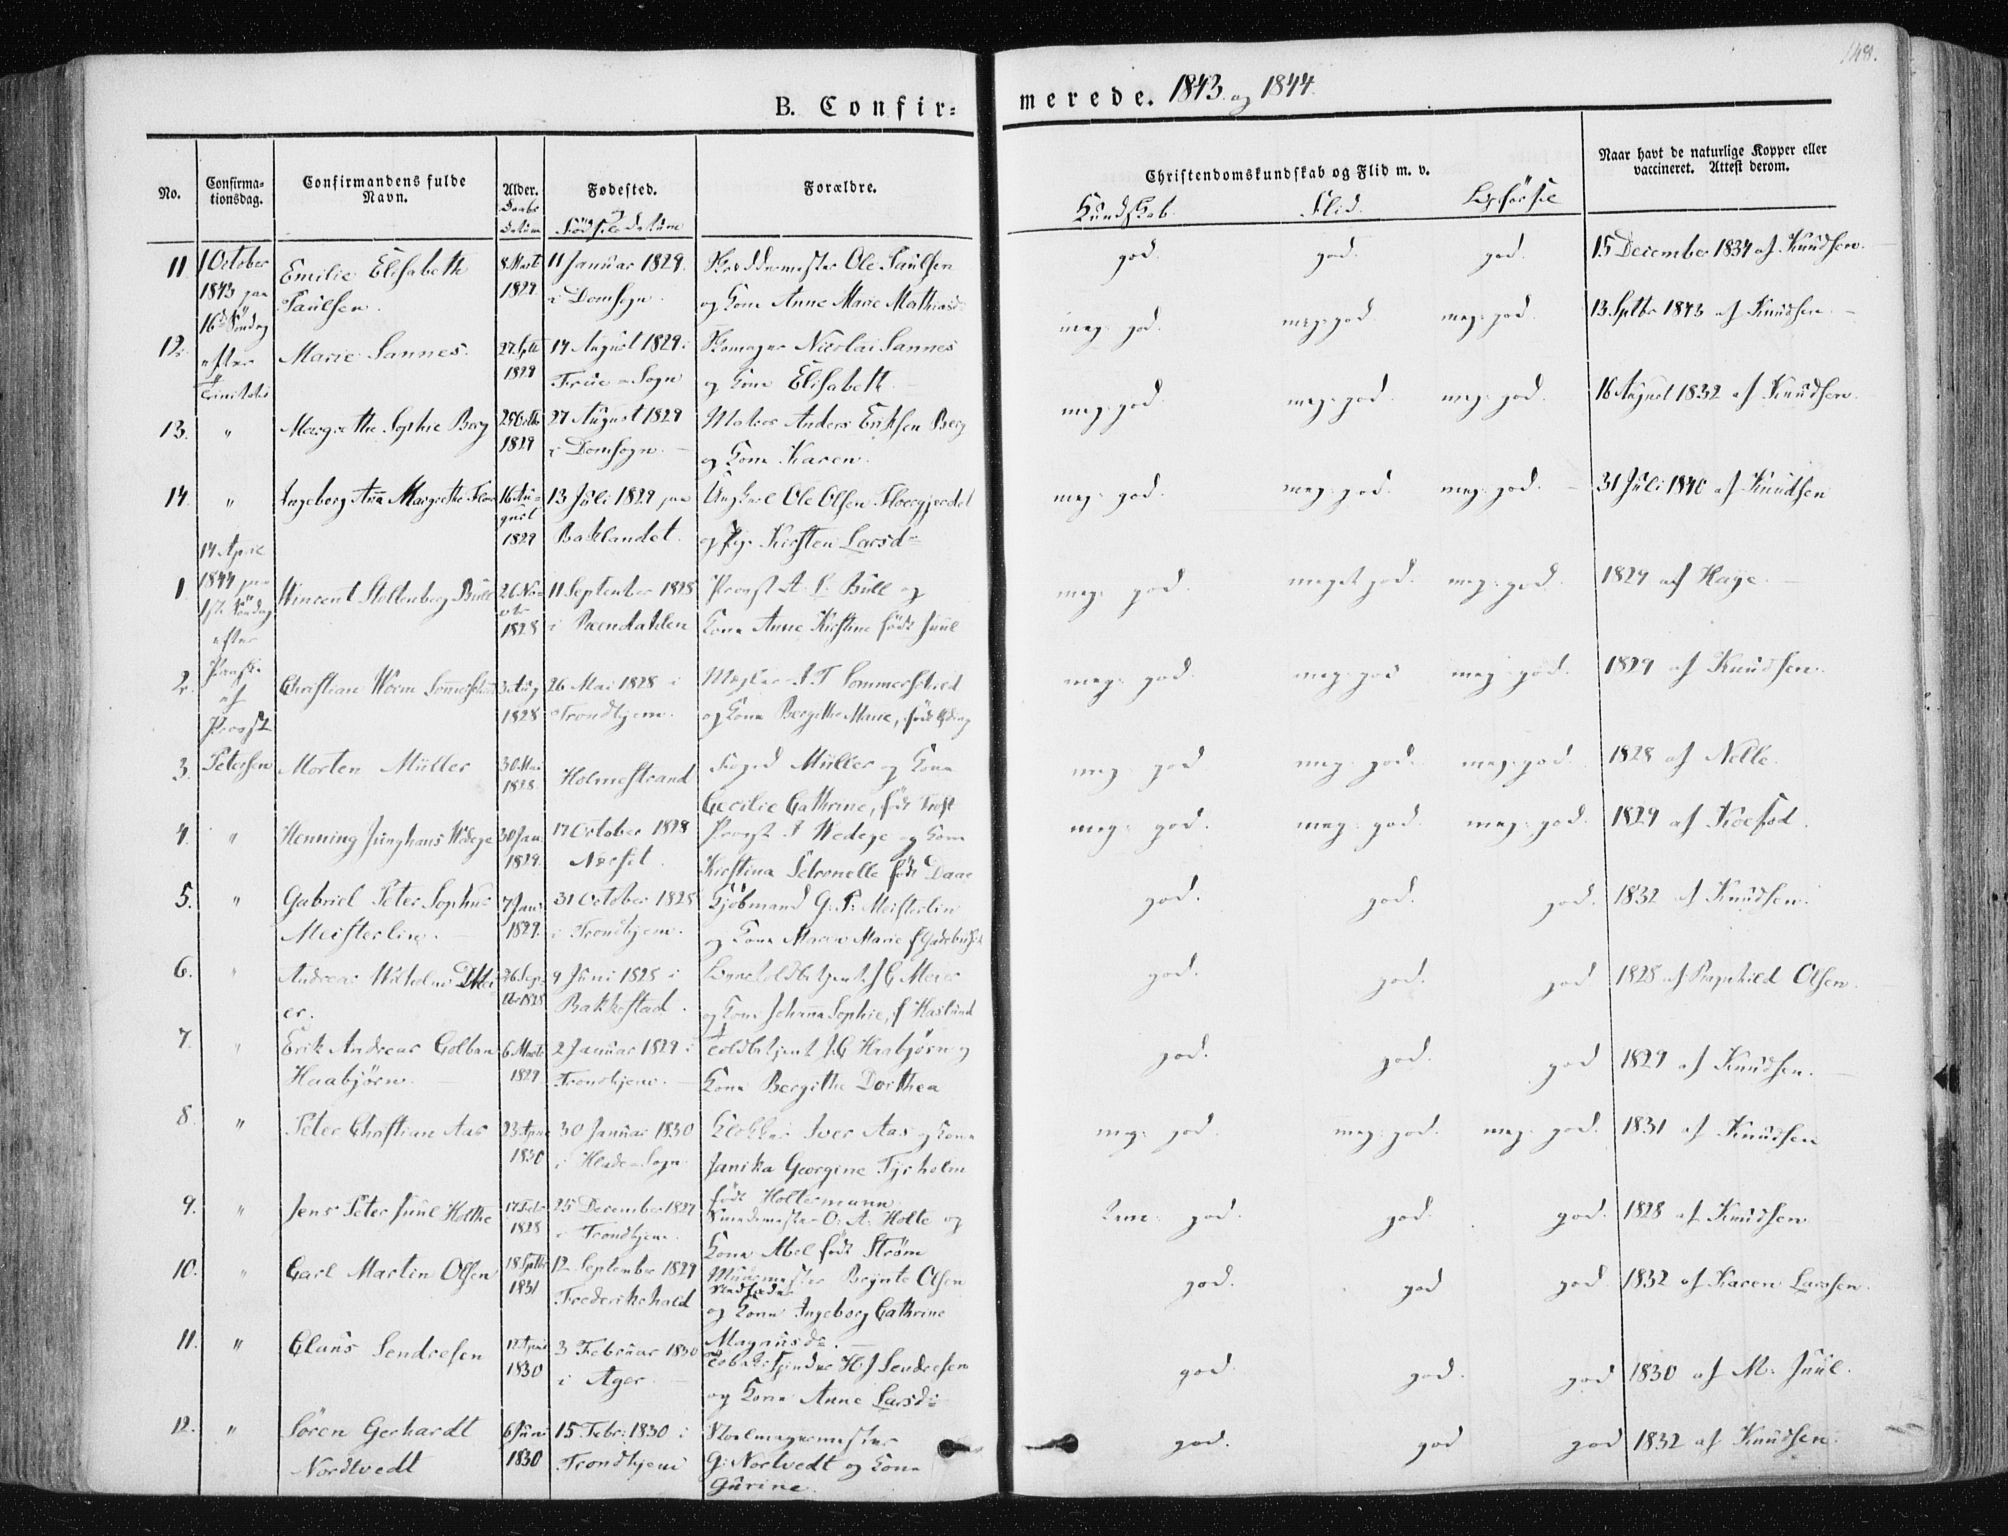 148.
B. Confir=
merede. 1843 og 1844
No.
Confirma-
tionsdag.
Confirmandens fulde
Navn.
Alder.
Daabs
Datum
Fødested.
Fødselsdatum
Forældre.
Christendomskundskab og Flid m. v.
Kundskab.
Flid.
Naar havt de naturlige Kopper eller
vaccineret. Attest derom.
11 1 October Emilie Elisabeth 8 Marts 11 Januar 1829. Ole Paulsen god. god. god. 15 December 1834 af Knudsen.
1843 paa Paulsen. 1829 i Domsogn. og Kone Anne Marie
16d Søndag
12. efter Marie Sannes. 27 Sptr 14 August 1829 i Nicolai Sannes meg: god. meg: god. meg: god. 13 Sptbr 1843 af Knudsen.
Trinitatis 1829 Frue-Sogn og Kone Elisabeth.
13. " Margrethe Sophie Berg 1829 27 August 1829 Anders Eriksen Berg meg: god. meg: god. meg: god. 16 August 1832 af Knudsen.
i Domsogn. og Kone Karen.
14. " Ingeborg Margrethe 16 Au- 13 Juli 1829 paa Ungkarl Ole Olsen meg: god. meg: god. meg: god. 31 Juli 1840 af Knudsen
gust
1829 Baklandet. og Kirsten Larsd=
14 April
1. 1844 paa Wincent Stoltenberg Bull 26 No- 11 September 1828 Provst Bull og meg: god. meget god. meg: god. 1829 af Hage.
1ste Søndag
efter 1828 i Kone Anne Kirstine født Juul
2. Paaske Christian Worm 3 Aug 26 Mai 1828 i Sommerschield meg: god. meg: god meg: god. 1829 af Knudsen.
af 1828 Trondhjem. og Kone Bergithe Marie, født
Provst
3. Petersen Morten Müller 1828 Holmestrand Foged Müller og Kone meg: god meg: god. meg: god. 1828 af Nelle.
Cecilie Cathrine, født
4. " Henning Junghans Wedege 30 Jan 17 October 1828 Provst Wedege og Kone meg: god. meg: god. meg: god. 1829 af
1829. Næsset. Kirstina Petronelle født Daae
5. " Gabriel Peter Sophus 7 Jan 31 October 1828 Kjøbmand G. P. Meisterlin god. god. god. 1832 af Knudsen.
Meisterlin. 1829. i Trondhjem. og Kone Maren Marie
6. " Andreas Wilhelm 26 Sep- 9 Juni 1828 i Meier god. god. god 1828 af Ragnhild Olsen.
er. tbr 1828 Bakkestad. og Kone Johanna Sophie, f Haslund
7. " Erik Andreas Colban 6 Marts 2 Januar 1829 i Toldbetjent Haabjørn og god. god. god 1829 af Knudsen.
Haabjørn. 1829. Trondhjem. Kone Bergithe Dorthea
8. " Peter Christian Aas 23 April 30 Januar 1830 Klokker Iver Aas og Kone meg: god. meg: god. meg: god. 1831 af Knudsen
1830 i Hlade-Sogn. Janika Georgine Tyrholm
født Holtermann
9. " Jens Peter Juul Holthe 17 Febr 25 December 1827 O. A. Holte og god. god. god. 1828 af Knudsen
1828 i Trondhjem. Kone Abel født Strøm
10. " Carl Martin Olsen 18 Sptbr 12 September 1829 Muurmester Brynte Olsen god. god god. 1832 af Karen Larssen.
1831 Frederikshald og Kone Ingeborg Cathrine
Magnusd=.
11. " Claus Sendresen 3 Februar 1830 H. J Sendresen god. god. god 1830 af M. Juul.
1830 i Ager. og Kone Anne Larsd=
12. " Sören Gerhardt 6 Juni 15 Febr: 1830 i Stolemagermester god. god god 1832 af Knudsen.
Nordtvedt 1830 Trondhjem G. Nortvedt og Kone
Gurine.